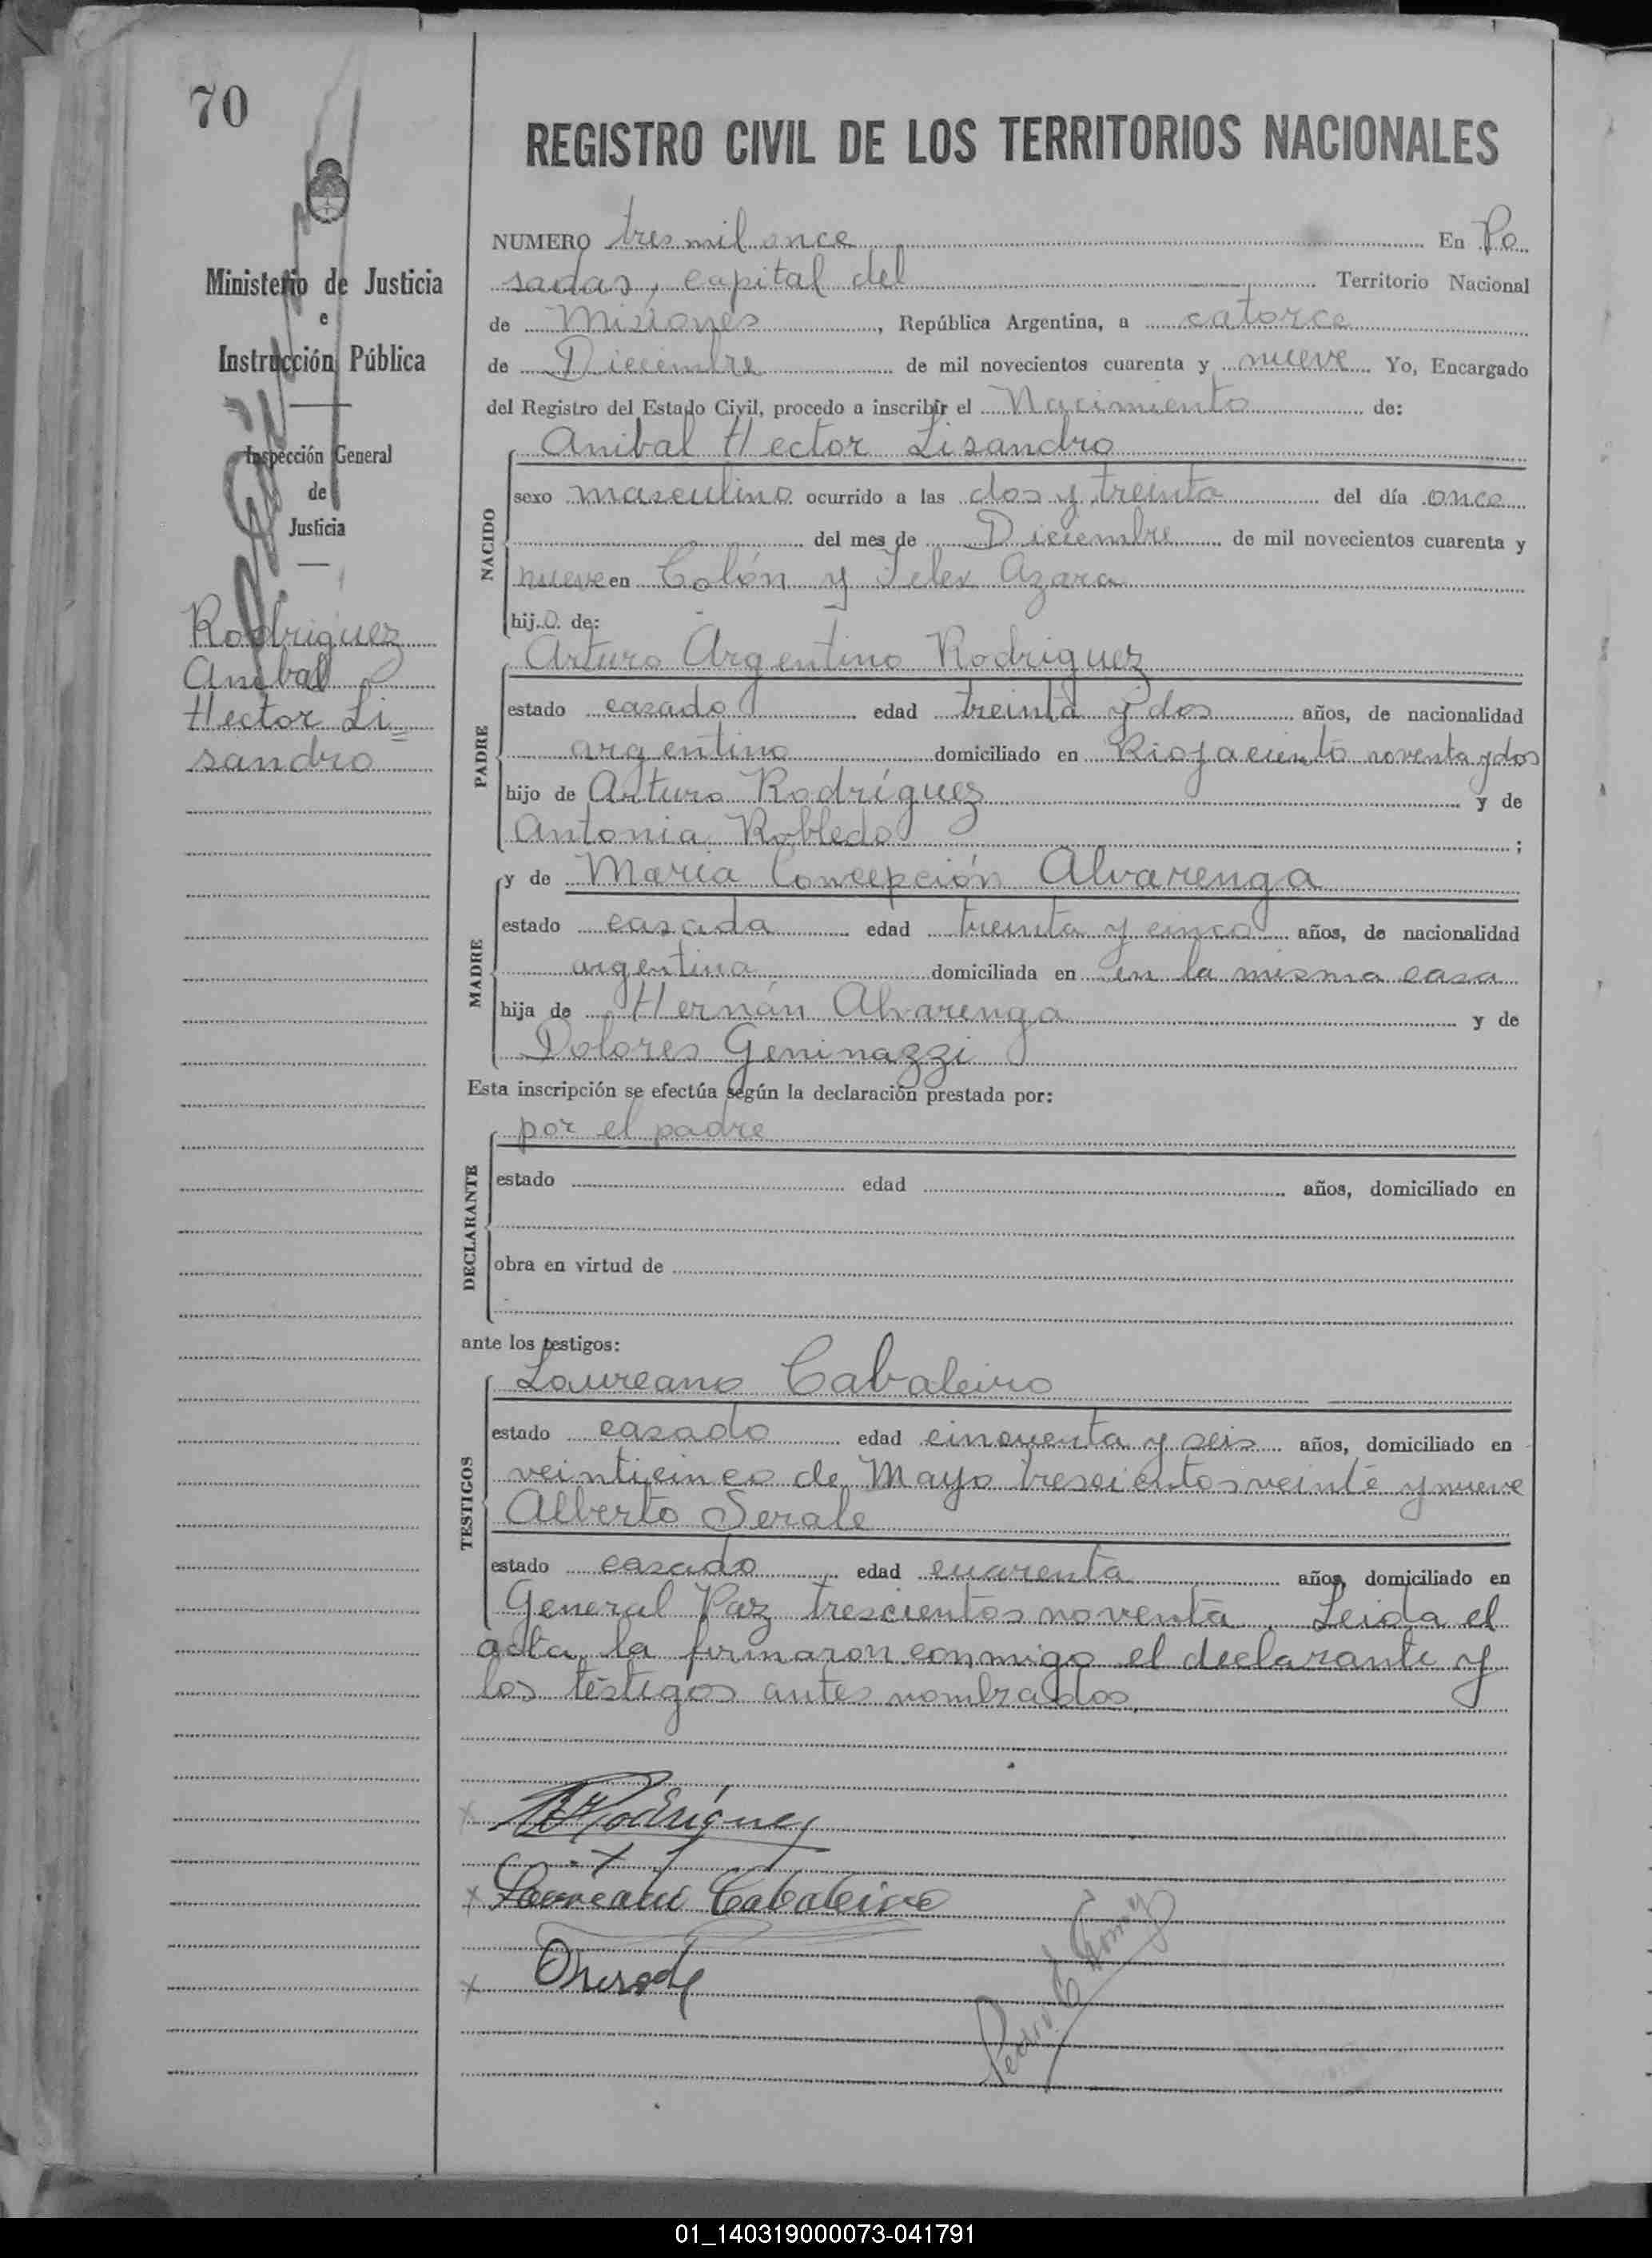 70
REGISTRO CIVIL DE LOS TERRITORIOS NACIONALES
Ministerio de Justicia
e
Instrucción Pública
Inspección General
de
Justicia
Rodriguez
Anibal
Hector Li=
sandro
NUMERO tres mil once En Po
sadas, capital del Territorio Nacional
de Misiones, República Argentina, a catorce
de Diciembre de mil novecientos cuarenta y nueve Yo, Encargado
del Registro del Estado Civil, procedo a inscribir el Nacimiento de:
NACIDO
Anibal Hector Lisandro
sexo masculino ocurrido a las dos y treinta del día once
del mes de Diciembre de mil novecientos cuarenta y
nueve en Colón y Felex Azara
hijo de:
PADRE
Arturo Argentino Rodriguez
estado casado edad treinta y dos años, de nacionalidad
argentino domiciliado en Rioja ciento noventa y dos
hijo de Arturo Rodríguez y de
Antonia Robledo ;
MADRE
y de Maria Concepción Alvarenga
estado casada edad treinta y cinco años, de nacionalidad
argentina domiciliada en en la misma casa
hija de Hernán Alvarenga y de
Dolores Geninazzi
Esta inscripción se efectúa según la declaración prestada por:
DECLARANTE
por el padre
estado edad años, domiciliado en
obra en virtud de
ante los testigos:
TESTIGOS
Laureano Cabaleiro
estado casado edad cincuenta y seis años, domiciliado en
veinticinco de Mayo trescientos veinte y nueve
Alberto Serale
estado casado edad cuarenta años, domiciliado en
General Paz trescientos noventa. Leida el
acta, la firmaron conmigo el declarante y
los testigos antes nombrados.
Rodríguez
Laureano Cabaleiro
01_140319000073-041791